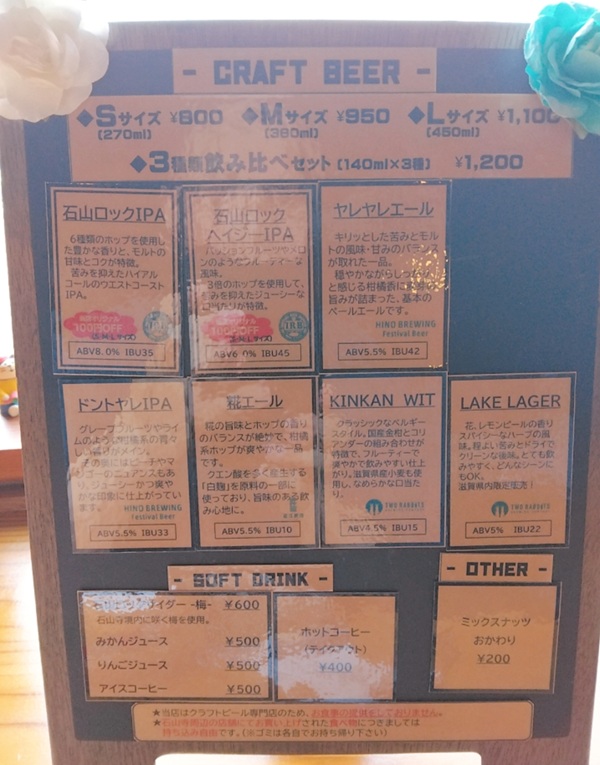 - CRAFT BEER -
◆Sサイズ ¥800 ◆Mサイズ ¥950 ◆Lサイズ ¥1,100
(270ml) (380ml) (450ml)
◆3種類飲み比べセット (140ml×3種) ¥1,200
石山ロックIPA
6種類のホップを使用し
た豊かな香りと、モルトの
甘味とコクが特徴。
苦みを抑えたハイアル
コールのウエストコースト
IPA。
100円OFF
(S,M,Lサイズ)
ABV8.0% IBU35
石山ロック
ヘイジーIPA
パッションフルーツやメロ
ンのようなフルーティーな
風味。
3倍のホップを使用して、
苦みを抑えたジューシーな
口当たりが特徴。
100円OFF
ABV6.0% IBU45
ヤレヤレエール
キリッとした苦みとモル
トの風味・甘みのバランス
が取れた一品。
穏やかながらしっかり
と感じる柑橘香に
旨みが詰まった、基本の
ペールエールです。
HINO BREWING
Festival Beer
ABV5.5% IBU42
ドントヤレIPA
グレープフルーツやライ
ムのような柑橘系の青々
しい香りがメイン。
その奥にはピーチやマ
ンゴーのニュアンスもあ
り、ジューシーかつ爽や
かな印象に仕上がってい
ます。
HINO BREWING
Festival Beer
ABV5.5% IBU33
糀エール
糀の旨味とホップの香り
のバランスが絶妙で、柑橘
系ホップが爽やかな一品
です。
クエン酸を多く産生する
「白麹」を原料の一部に
使っており、旨味のある飲
み心地に。
ABV5.5% IBU10
KINKAN WIT
クラッシックなベルギー
スタイル。国産金柑とコリ
アンダーの組み合わせが
特徴で、フルーティーで
爽やかで飲みやすい仕上
がり。滋賀県産小麦も使
用し、なめらかな口当た
り。
TWO RABBITS
ABV4.5% IBU15
LAKE LAGER
花、レモンピールの香り
スパイシーなハーブの風
味。程よい苦みとドライで
クリーンな後味。とても飲
みやすく、どんなシーンに
もOK。
滋賀県内限定販売!
TWO RABBITS
ABV5% IBU22
- SOFT DRINK -
サイダー -梅- ¥600
石山寺境内に咲く梅を使用。
みかんジュース ¥500
りんごジュース ¥500
アイスコーヒー ¥500
ホットコーヒー
(テイクアウト)
¥400
- OTHER -
ミックスナッツ
おかわり
¥200
★当店はクラフトビール専門店のため、お食事の提供をしておりません。
★石山寺周辺の店舗にてお買い上げされた食べ物につきましては
持ち込み自由です。(※ゴミは各自でお持ち帰り下さい)